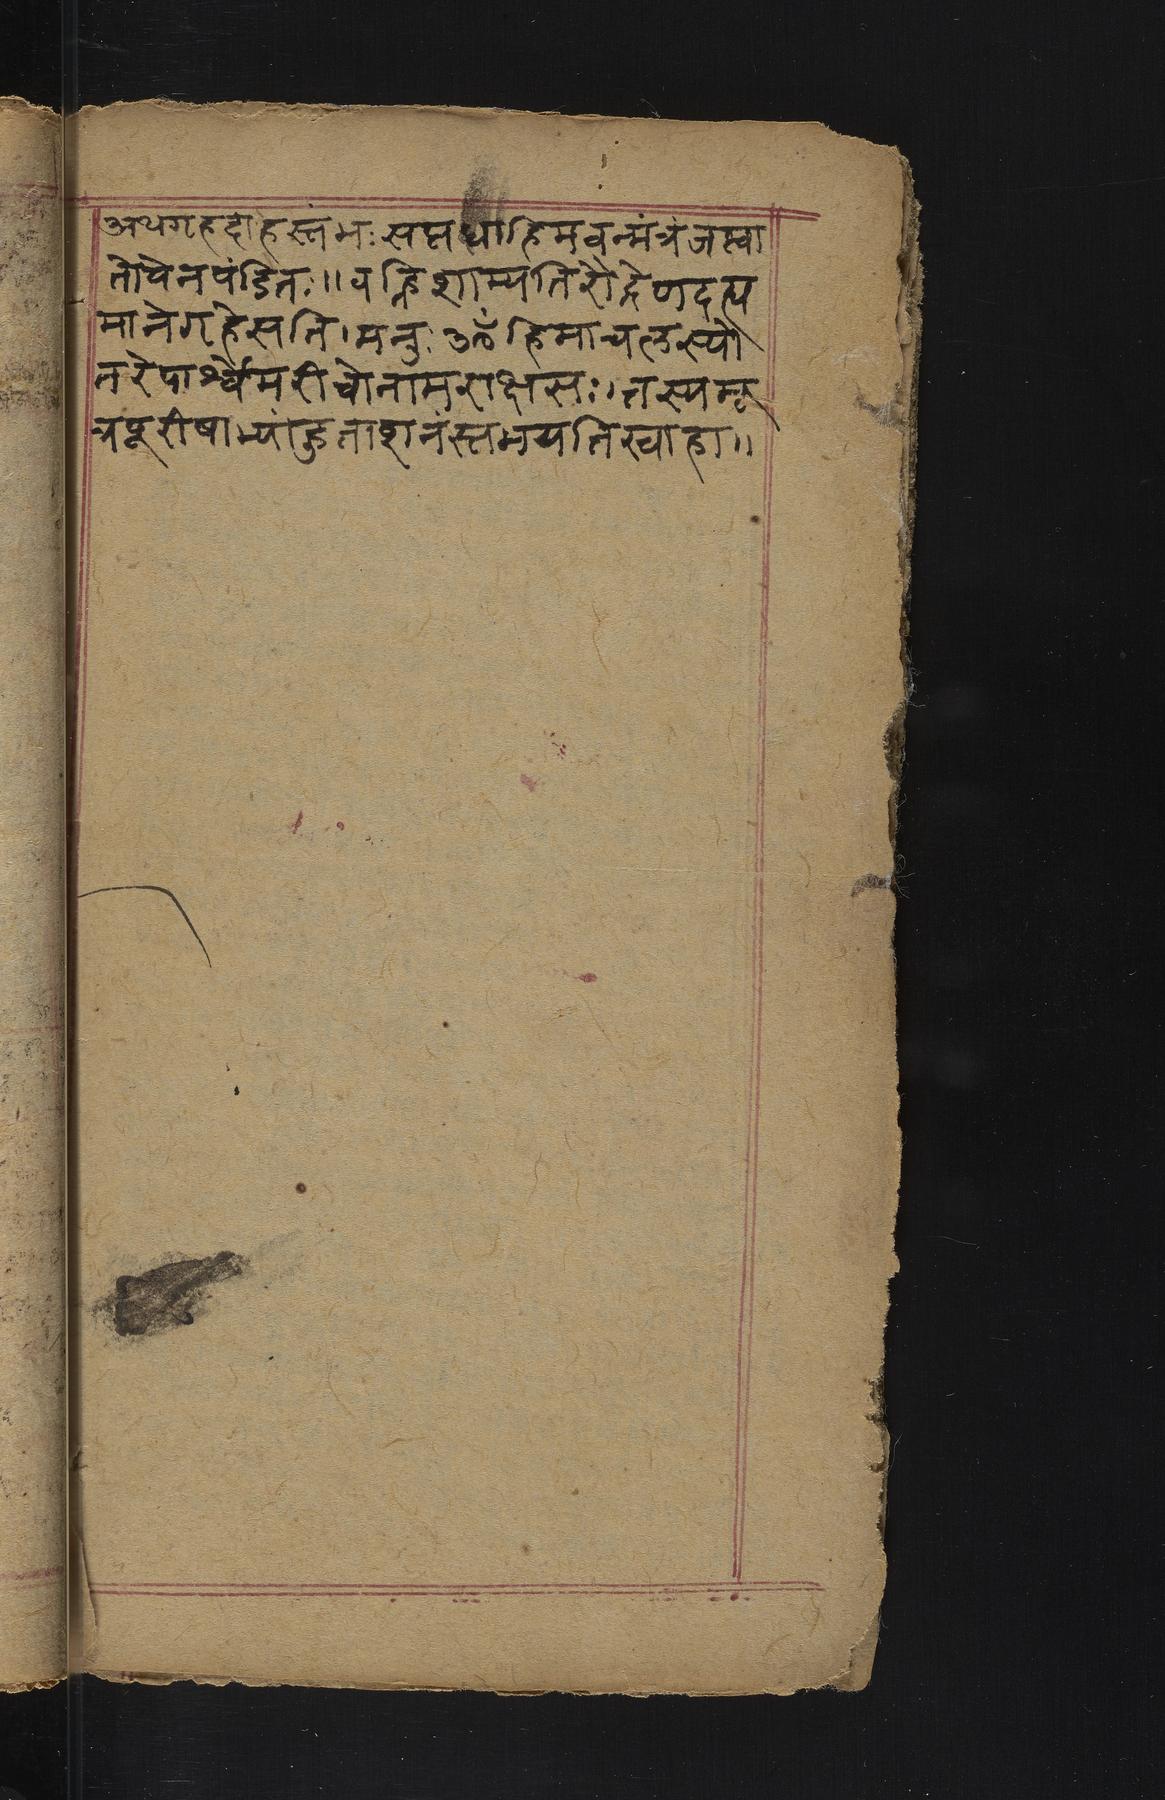 अथगृहदाहस्तंभःसप्तधाहिमवन्मंत्रंजप्त्वा
तोयेनपंडितः॥वह्निशाम्यतिरौद्रेणदह्य
मानेगृहेसति।मनुःॐहिमाचलस्यो
त्तरेपार्श्वेमरीचोनामराक्षसः।तस्यमू
त्रपूरीषाभ्यांहुताशनंस्तंभयतिस्वाहा॥